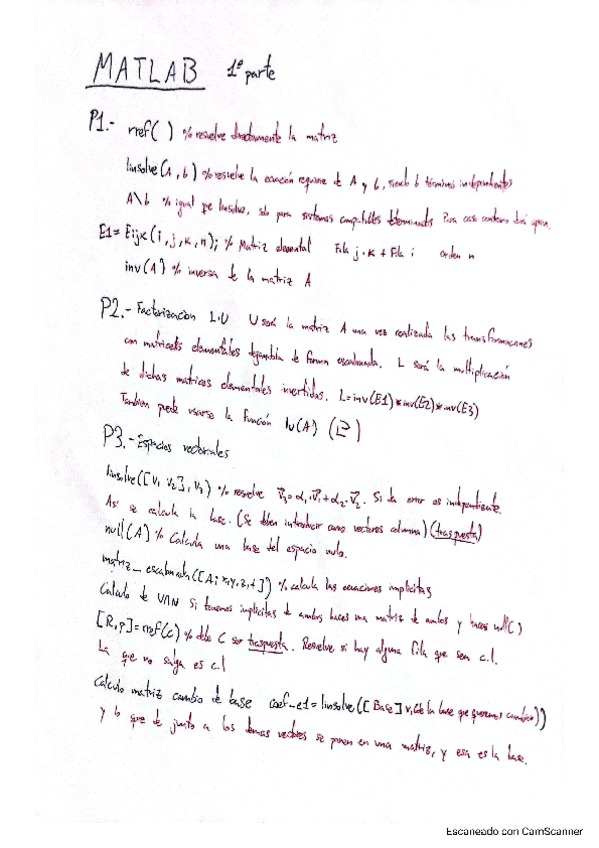 MATLAB 1ª parte
P1.- rref( ) % resuelve directamente la matriz
linsolve(A, b) % resuelve la ecuación requiere de A y b, siendo b términos independientes
A\b % igual que linsolve, solo para sistemas compatibles determinados Para caso contrario dará
E1 = Eijk(i, j, k, n); % Matriz elemental Fila j·k + Fila i orden n
inv(A) % inversa de la matriz A
P2.- Factorización L·U U será la matriz A una vez realizada las transformaciones
con matrices elementales dejándola de forma escalonada. L será la multiplicación
de dichas matrices elementales invertidas. L=inv(E1)*inv(E2)*inv(E3)
Tambien puede usarse la función lu(A)
P3.- Espacios vectoriales
linsolve([v1 v2], v3) % resuelve v3=α1·v1+α2·v2. Si da error es independiente.
Así se calcula la base. (Se deben introducir como vectores columna) (traspuesta)
null(A) % Calcula una base del espacio nulo.
matriz_escalonada([A; x,y,z,t]) % calcula las ecuaciones implícitas
Calculo de U∩W Si tenemos implícitas de ambos haces una matriz de ambos y haces null( )
[R,p]=rref(C) % debe C ser traspuesta. Resuelve si hay alguna fila que sea c.l.
La que no salga es c.l
Calculo matriz cambio de base coef_e1=linsolve([Base] v1(de la base que queremos cambiar))
y lo que de junto a los demas vectores se ponen en una matriz, y esa es la base.
Escaneado con CamScanner